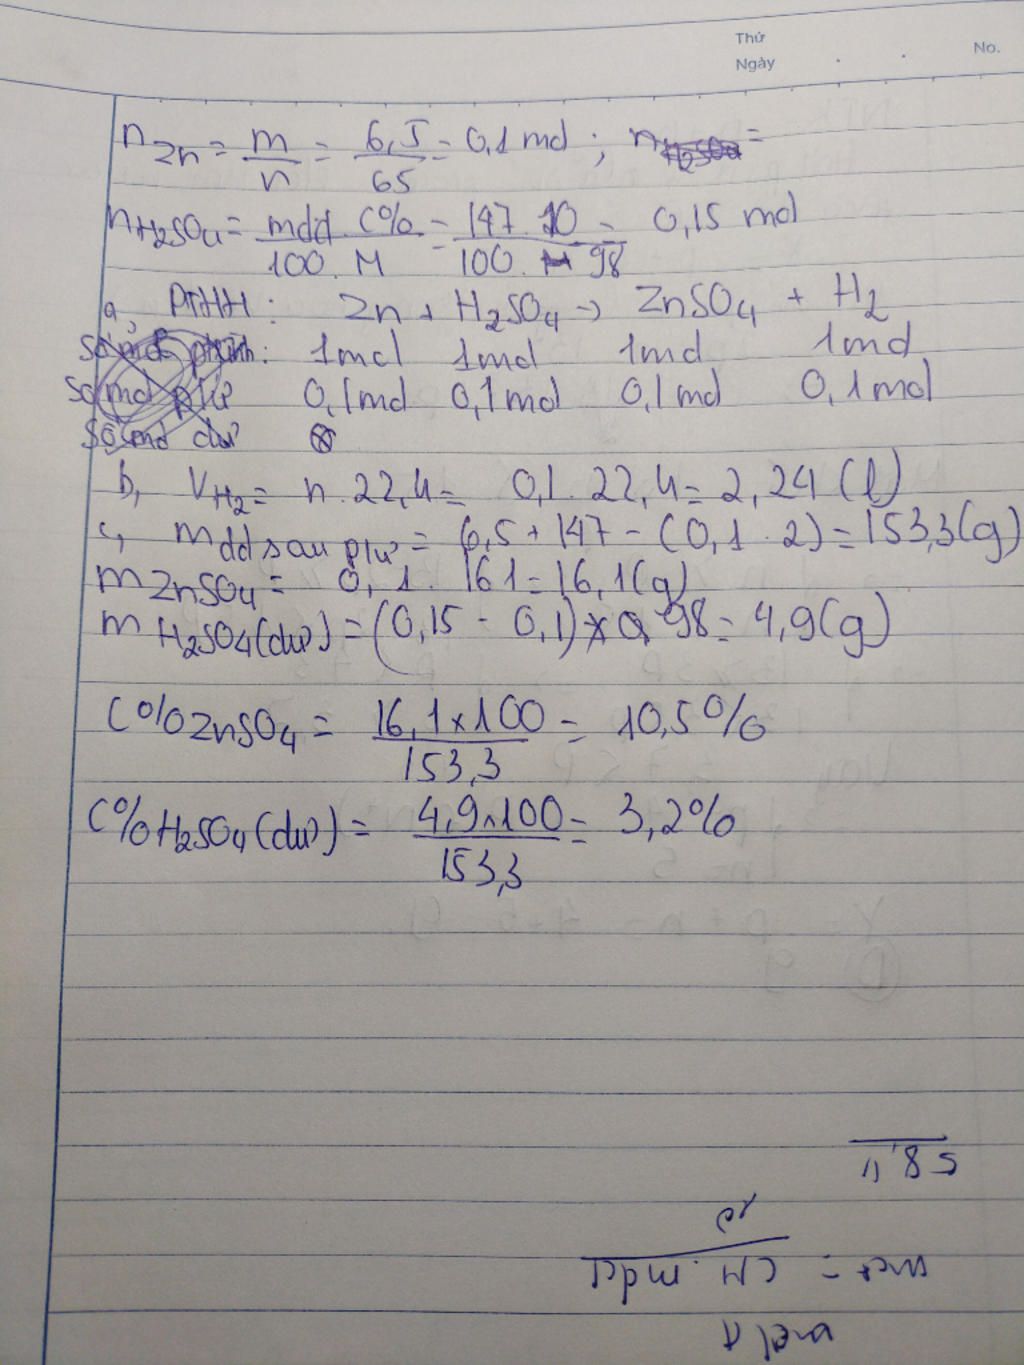 Thứ
Ngày
No.
n Zn = m/n = 6,5/65 = 0,1 mol ; n H2SO4 =
nH2SO4 = mdd. C%/100. M = 147. 10/100. 98 = 0,15 mol
a, PTHH: Zn + H2SO4 → ZnSO4 + H2
Số mol ptrình: 1mol 1mol 1mol 1mol
Số mol p/ư 0,1mol 0,1mol 0,1mol 0,1mol
Số mol dư
b, VH2 = n. 22,4 = 0,1. 22,4 = 2,24 (l)
c, mdd sau p/ư = 6,5 + 147 - (0,1. 2) = 153,3(g)
m ZnSO4 = 0,1. 161 = 16,1(g)
m H2SO4(dư) = (0,15 - 0,1) x 98 = 4,9(g)
C% ZnSO4 = 16,1x100/153,3 = 10,5%
C% H2SO4(dư) = 4,9x100/153,3 = 3,2%
mct = CM. mdd